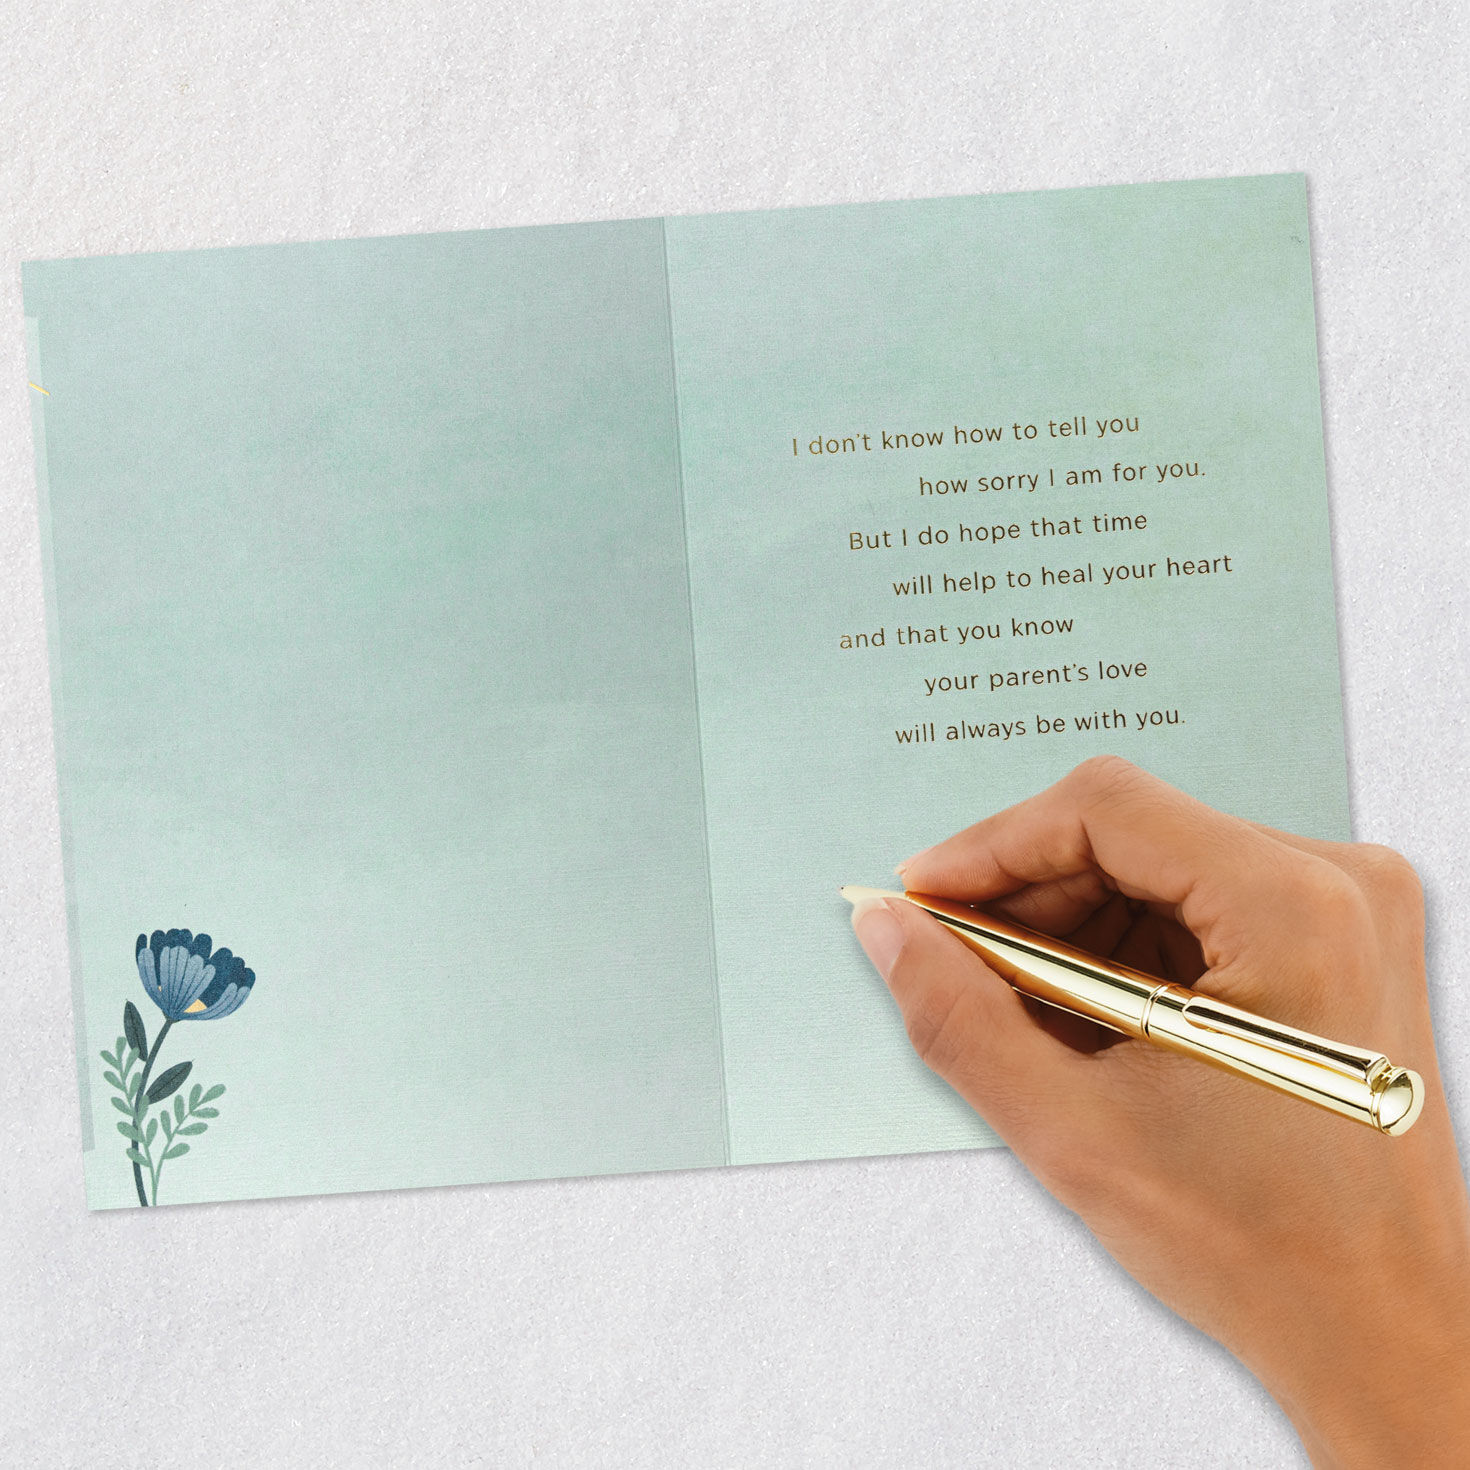 I don't know how to tell you
how sorry I am for you.
But I do hope that time
will help to heal your heart
and that you know
your parent's love
will always be with you.